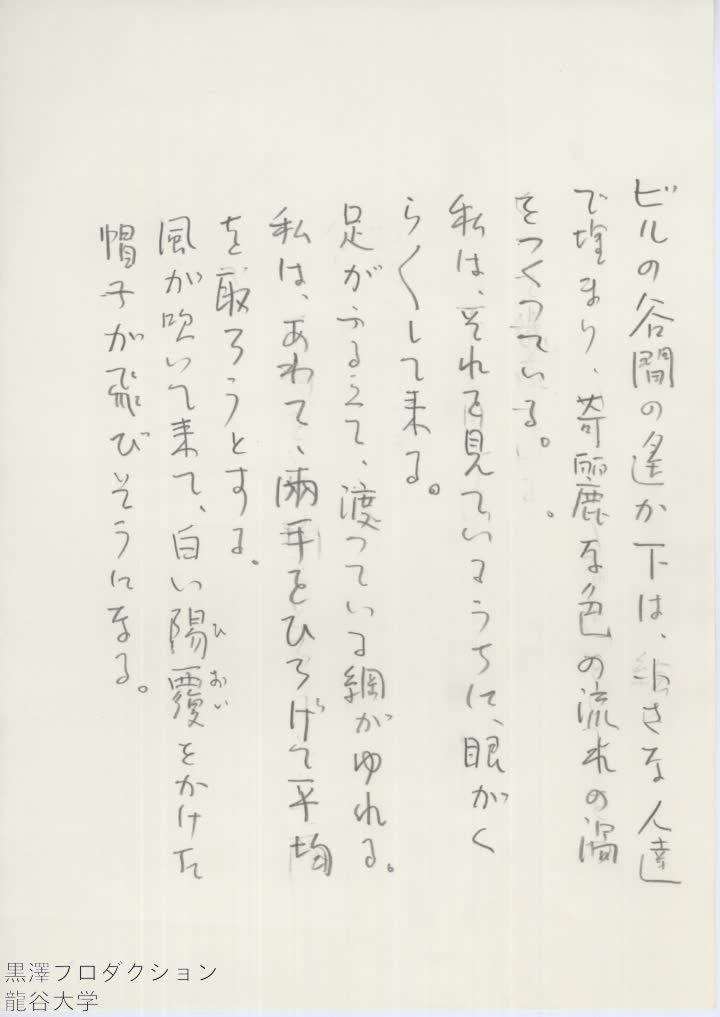 ビルの谷間の遙か下は、小さな人達
で埋まり、荷麗な色の流れの渦
をつくっている。
私は、それを見ているうちに、眼がく
らくして来る。
足がふるえて、渡っている綱がゆれる。
私は、あわてて、両手をひろげて平均
を取ろうとする。
風が吹いて来て、白い陽覆をかけた
ひおい
帽子が飛びそうになる。
黒澤プロダクション
龍谷大学